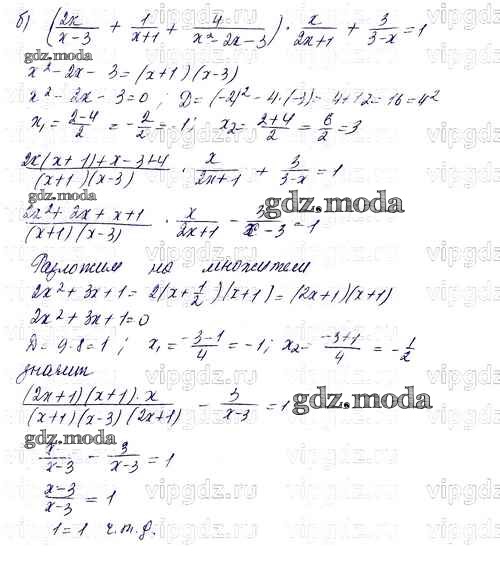 б) (2x/(x-3) + 1/(x+1) + 4/(x²-2x-3)) · x/(2x+1) + 3/(3-x) = 1
gdz.moda
x² - 2x - 3 = (x+1)(x-3)
x² - 2x - 3 = 0 ; D = (-2)² - 4·(-3) = 4+12 = 16 = 4²
x₁ = (2-4)/2 = -2/2 = -1 ; x₂ = (2+4)/2 = 6/2 = 3
(2x(x+1)+x-3+4)/((x+1)(x-3)) · x/(2x+1) + 3/(3-x) = 1
gdz.moda
(2x²+2x+x+1)/((x+1)(x-3)) · x/(2x+1) - 3/(x-3) = 1
gdz.moda
Разложим на множители
2x² + 3x + 1 = 2(x+1/2)(x+1) = (2x+1)(x+1)
2x² + 3x + 1 = 0
D = 9-8 = 1 ; x₁ = (-3-1)/4 = -1 ; x₂ = (-3+1)/4 = -1/2
значит
((2x+1)(x+1)·x)/((x+1)(x-3)(2x+1)) - 3/(x-3) = 1
gdz.moda
gdz.moda
x/(x-3) - 3/(x-3) = 1
(x-3)/(x-3) = 1
1 = 1 ч.т.д.
vipgdz.ru